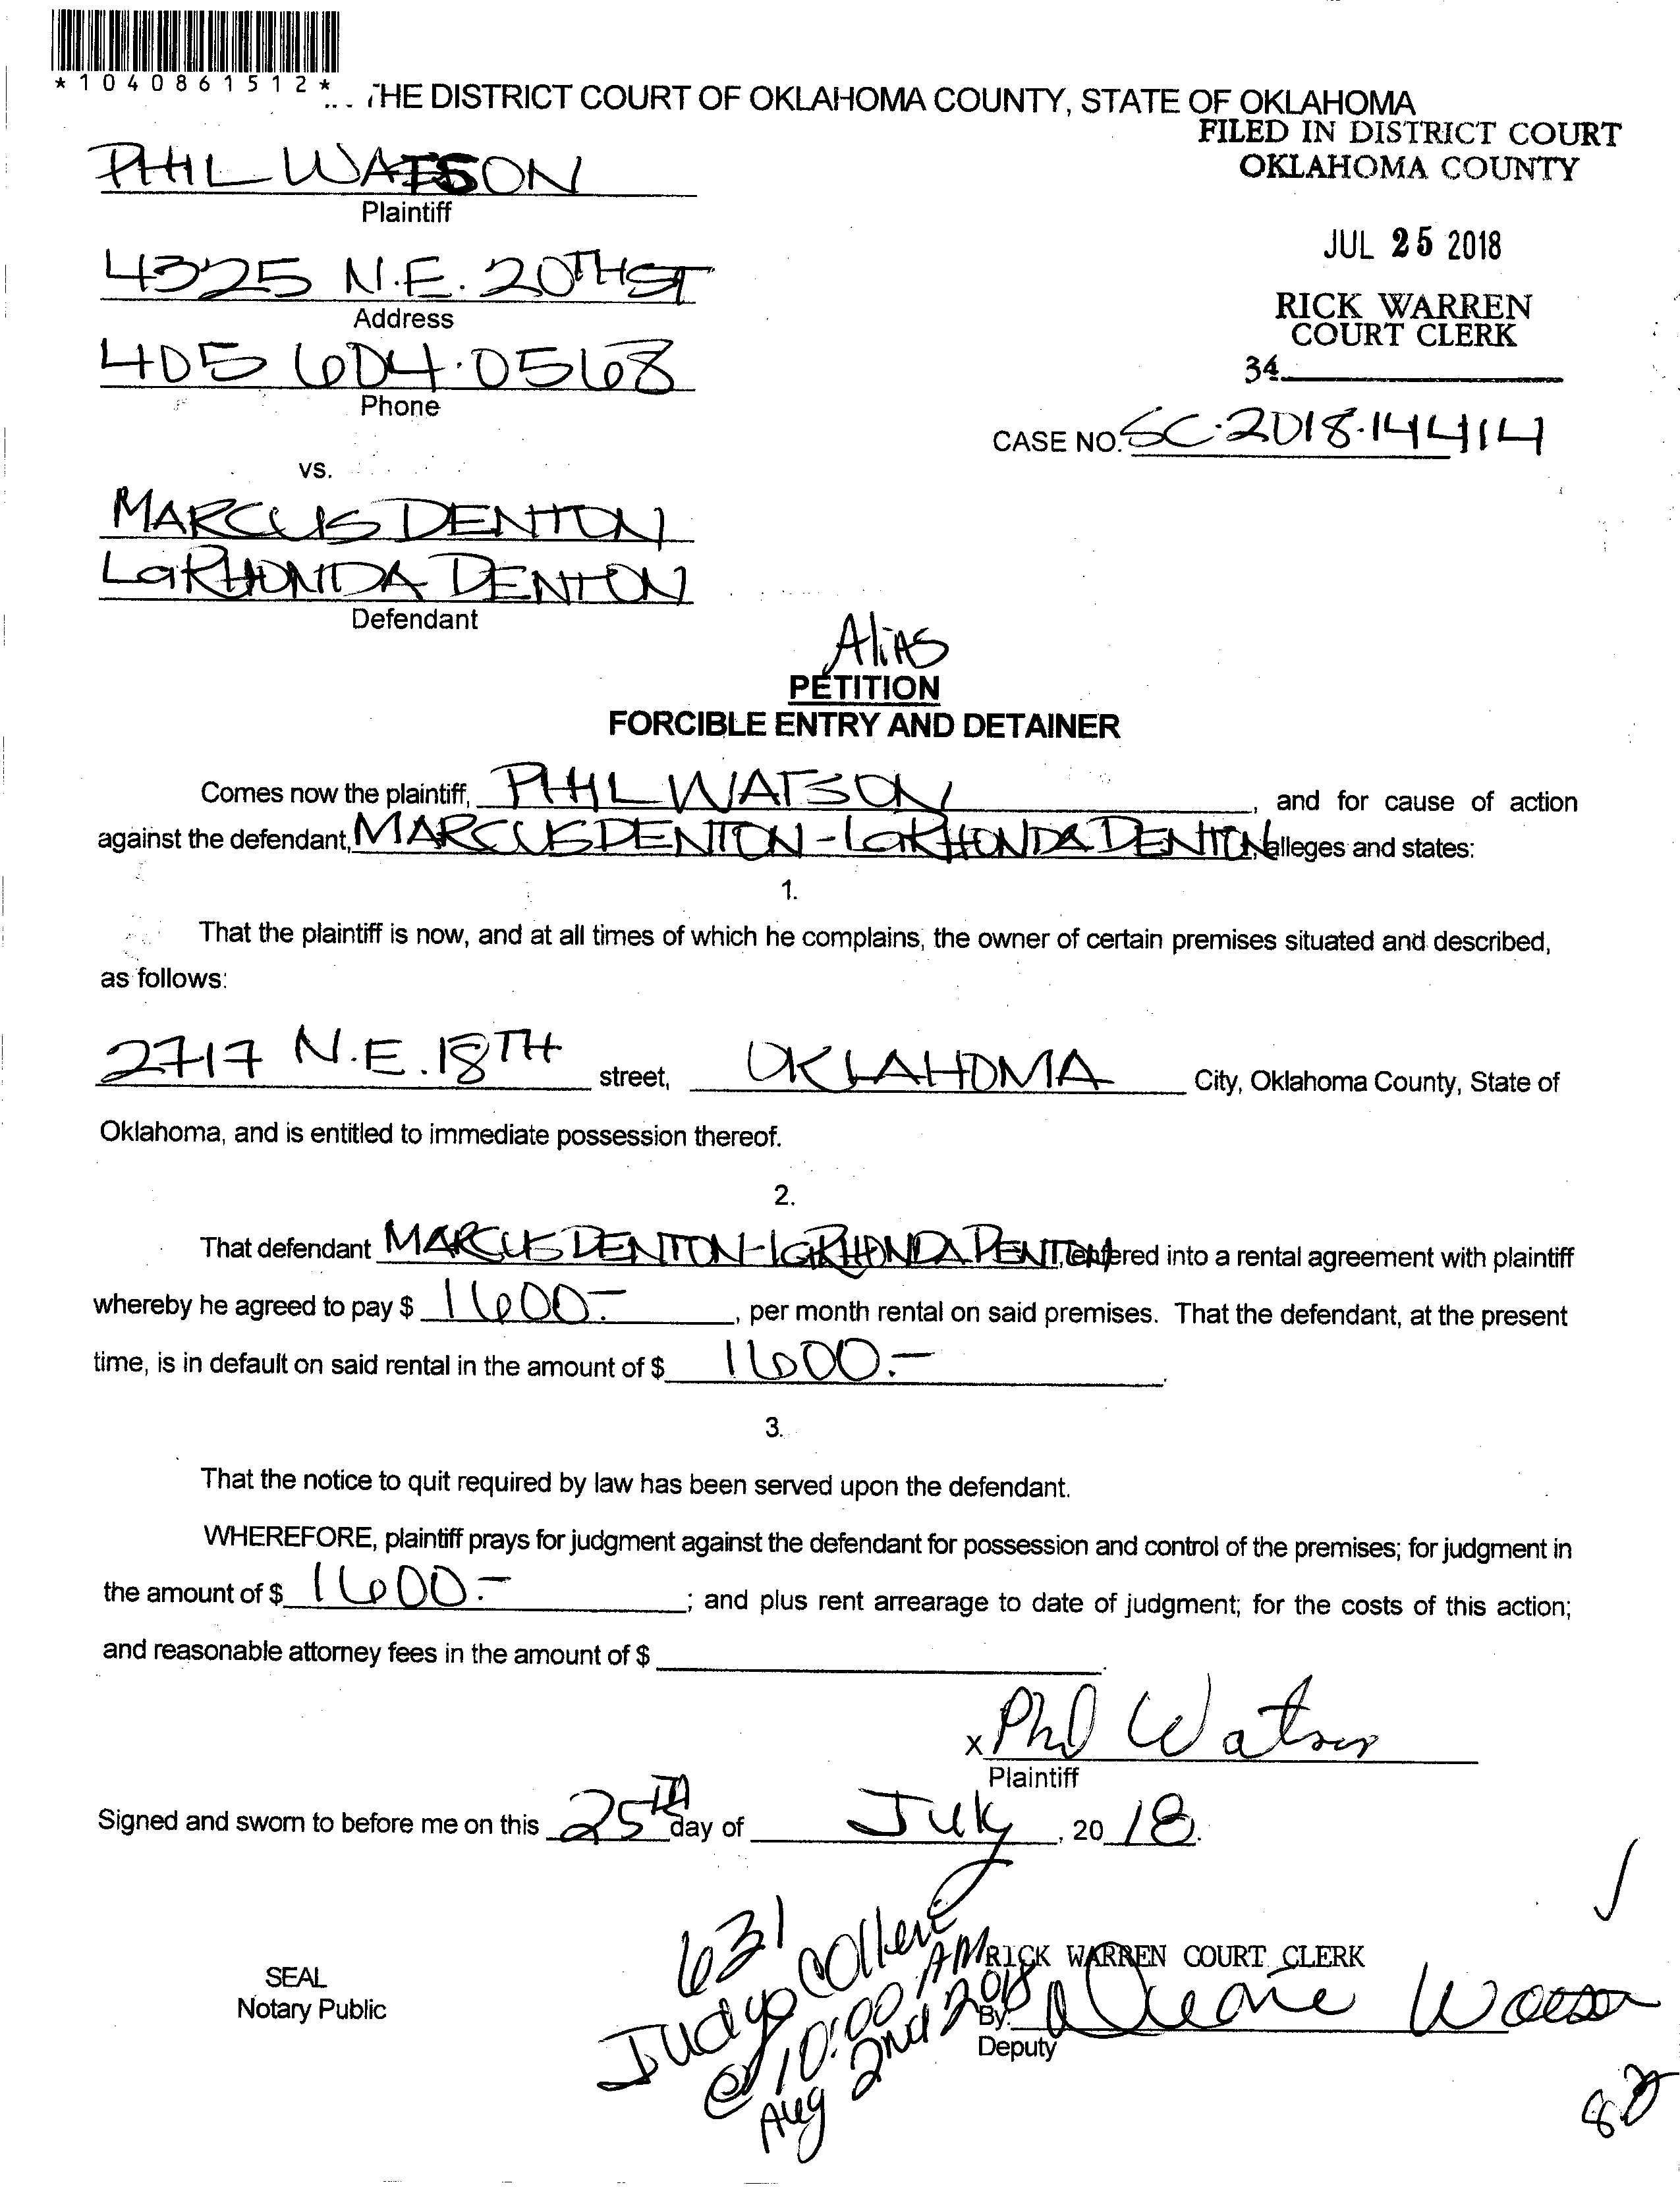 *1040861512*
THE DISTRICT COURT OF OKLAHOMA COUNTY, STATE OF OKLAHOMA
FILED IN DISTRICT COURT
OKLAHOMA COUNTY
PHIL WATSON
Plaintiff
JUL 25 2018
4325 N.E. 20TH ST
Address
RICK WARREN
COURT CLERK
405 604.0568
Phone
34
CASE NO. SC.2018.14414
vs.
MARCUS DENTON
LaRHONDA DENTON
Defendant
Alias
PETITION
FORCIBLE ENTRY AND DETAINER
Comes now the plaintiff, PHIL WATSON, and for cause of action
against the defendant, MARCUS DENTON - LaRHONDA DENTON, alleges and states:
1.
That the plaintiff is now, and at all times of which he complains, the owner of certain premises situated and described,
as follows:
2717 N.E. 18TH street, OKLAHOMA City, Oklahoma County, State of
Oklahoma, and is entitled to immediate possession thereof.
2.
That defendant MARCUS DENTON - LaRHONDA DENTON, entered into a rental agreement with plaintiff
whereby he agreed to pay $ 1600.-, per month rental on said premises. That the defendant, at the present
time, is in default on said rental in the amount of $ 1600.-.
3.
That the notice to quit required by law has been served upon the defendant.
WHEREFORE, plaintiff prays for judgment against the defendant for possession and control of the premises; for judgment in
the amount of $ 1600.-; and plus rent arrearage to date of judgment; for the costs of this action;
and reasonable attorney fees in the amount of $
x Phil Watson
Plaintiff
Signed and sworn to before me on this 25th day of July, 2018.
631
Judge Collen
@ 10:00 AM
Aug 2nd 2018
SEAL
Notary Public
RICK WARREN COURT CLERK
By:
Deputy
82